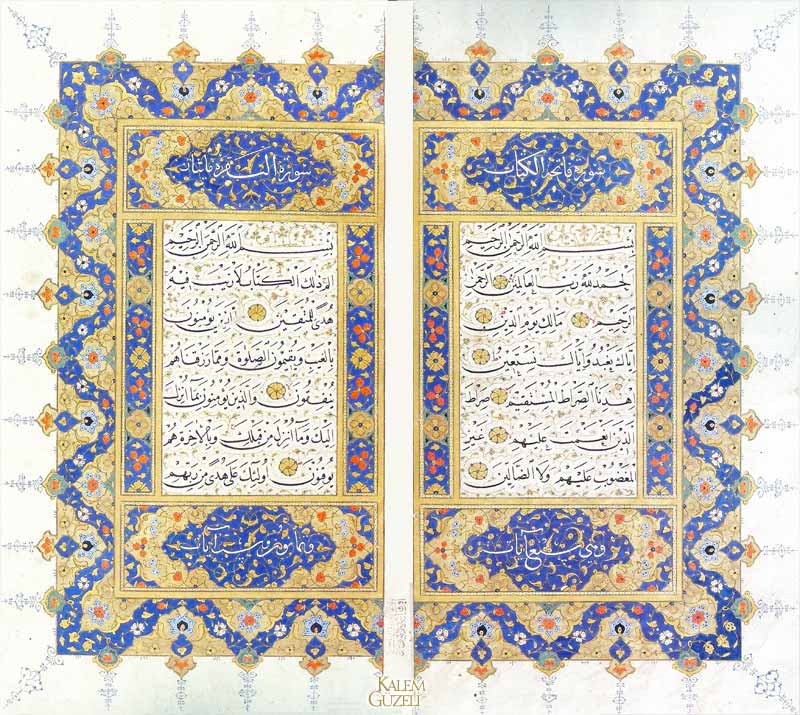 سورة فاتحة الكتاب
بسم الله الرحمن الرحيم
الحمد لله رب العالمين الرحمن
الرحيم مالك يوم الدين
اياك نعبد واياك نستعين
اهدنا الصراط المستقيم صراط
الذين انعمت عليهم غير
المغضوب عليهم ولا الضالين
وهي سبع آيات
سورة البقرة مائتان
بسم الله الرحمن الرحيم
الم ذلك الكتاب لا ريب فيه
هدى للمتقين الذين يؤمنون
بالغيب ويقيمون الصلوة ومما رزقناهم
ينفقون والذين يؤمنون بما انزل
اليك وما انزل من قبلك وبالاخرة هم
يوقنون اولئك على هدى من ربهم
وثمانون وست آيات
KALEM
GUZELİ